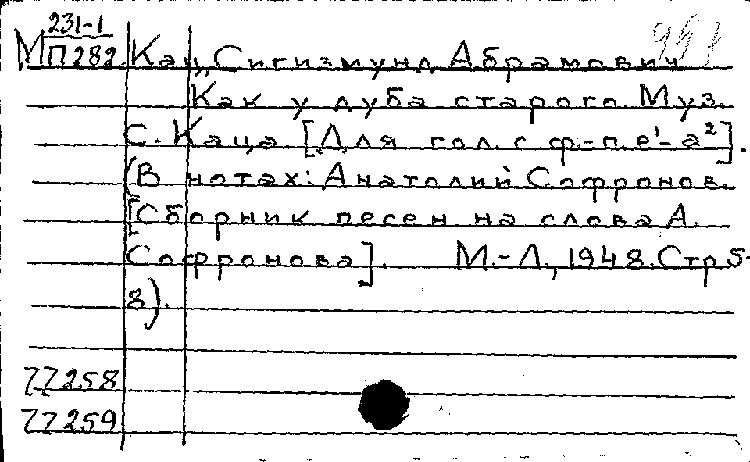 231-1
М П282. Кац, Сигизмунд Абрамович
Как у дуба старого. Муз.
С. Каца [Для гол. с ф-п. е¹-а²].
(В нотах: Анатолий Софронов.
[Сборник песен на слова А.
Софронова]. М.-Л., 1948. Стр. 5-
8).
77258
77259